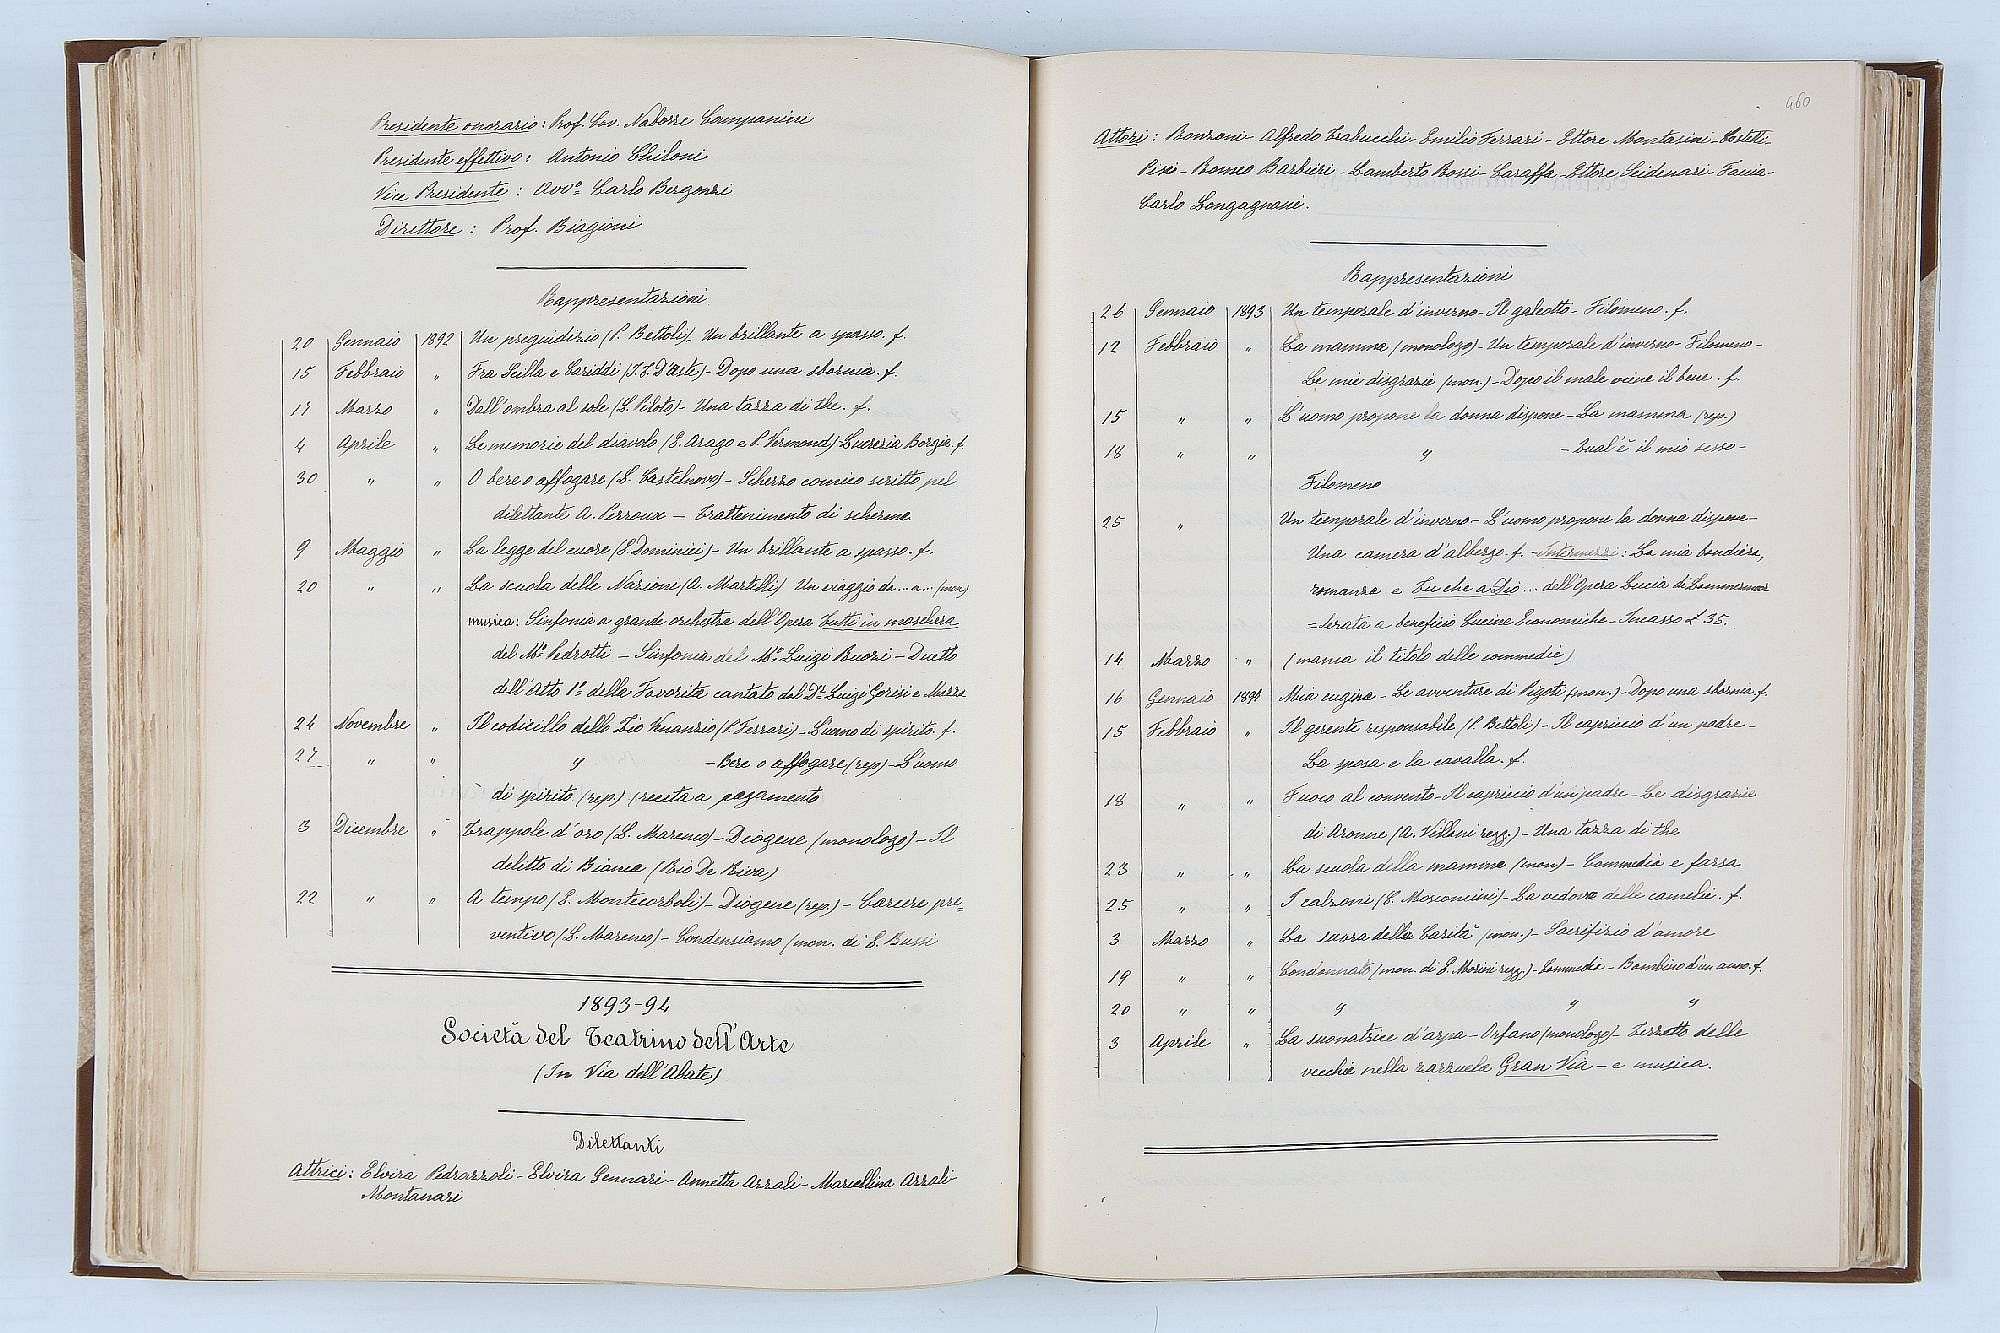 Presidente onorario: Prof. Cav. Naborre Campanini
Presidente effettivo: Antonio Chiloni
Vice Presidente: Avvº Carlo Bergonzi
Direttore: Prof. Biagioni
Rappresentazioni
20 Gennaio 1892 Un pregiudizio (P. Bettoli) - Un brillante a spasso. f.
15 Febbraio " Fra Scilla e Cariddi (I. T. D'Aste) - Dopo una sbornia. f.
17 Marzo " Dall'ombra al sole (L. Pilotto) - Una tazza di the. f.
4 Aprile " Le memorie del diavolo (E. Arago e P. Vermond) - Lucrezia Borgia. f.
30 " " O bere o affogare (L. Castelnovo) - Scherzo comico scritto pel
dilettante A. Perroux - Trattenimento di scherma
9 Maggio " La legge del cuore (E. Dominici) - Un brillante a spasso. f.
20 " " La scuola delle Nazioni (A. Martelli) Un viaggio da... a... (mon)
musica: Sinfonia a grande orchestra dell'Opera Tutti in maschera
del Mº Pedrotti - Sinfonia del Mº Luigi Buozi - Duetto
dell'Atto 1º della Favorita cantato dal Dr. Luigi Gorisi e
24 Novembre " Il codicillo dello Zio Venanzio (P. Ferrari) - L'uomo di spirito. f.
27 " " " - Bere o affogare (rep) - L'uomo
di spirito (rep.) (recita a pagamento
3 Dicembre " Trappole d'oro (L. Marenco) - Diogene (monologo) - Il
delitto di Bianca (Rio De Riva)
22 " " A tempo (E. Montecorboli) - Diogene (rep.) - Carcere pre-
ventivo (L. Marenco) - Condensiamo (mon. di E. Bussi
1893-94
Società del Teatrino dell'Arte
(In Via dell'Abate)
Dilettanti
Attrici: Elvira Pedrazzoli - Elvira Gennari - Annetta Azzali - Marcellina Azzali
Montanari
460
Attori: Bonzoni - Alfredo Trabucchi - Emilio Ferrari - Ettore Montasini - Costetti -
Pini - Romeo Barbieri - Lamberto Rossi - Caraffa - Ettore Seidenari - Fania -
Carlo Longagnani.
Rappresentazioni
26 Gennaio 1893 Un temporale d'inverno - Il galeotto - Filomeno. f.
12 Febbraio " La mamma (monologo) - Un temporale d'inverno - Filomeno -
Le mie disgrazie (mon.) - Dopo il male viene il bene. f.
15 " " L'uomo propone la donna dispone - La mamma (rep.)
18 " " " - Qual'è il mio sesso -
Filomeno
25 " Un temporale d'inverno - L'uomo propone la donna dispone -
Una camera d'albergo. f. - Intermezzi: La mia bandiera,
romanza e Tu che a Dio... dell'Opera Lucia di Lammermoor
= Serata a beneficio Cucine Economiche - Incasso £ 35.
14 Marzo " (manca il titolo delle commedie)
16 Gennaio 1894 Mia cugina - Le avventure di Pigoti (mon.) - Dopo una sbornia. f.
15 Febbraio " Il gerente responsabile (P. Bettoli) - Il capriccio d'un padre -
La sposa e la cavalla. f.
18 " " Fuoco al convento - Il capriccio d'un padre - Le disgrazie
di Aronne (A. Villani regg.) - Una tazza di the
23 " " La scuola della mamma (mon) - Commedia e farsa
25 " " I calzoni (E. Mosconcini) - La vedova delle camelie. f.
3 Marzo " La suora della Carità (mon.) - Sacrifizio d'amore
19 " " Condannato (mon. di E. Morini regg.) - Commedia - Bambino d'un anno. f.
20 " " " " "
3 Aprile " La suonatrice d'arpa - Orfano (monologo) - Terzetto delle
vecchie nella zarzuela Gran Via - e musica.